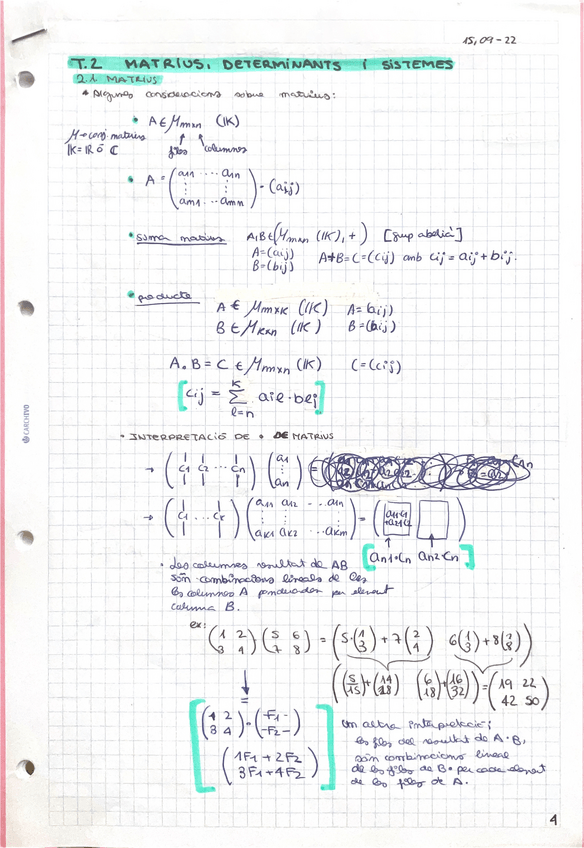 15,09-22
T.2 MATRIUS, DETERMINANTS i SISTEMES
2.1. MATRIUS
* Algunes consideracions sobre matrius:
• A ∈ M m×n (IK)
M → conj. matrius
IK = IR ó ℂ
files columnes
• A = ( a11 ... a1n
am1 ... amn ) = (aij)
• suma matrius A,B ∈ (M m×n (IK), +) [grup abelià]
A=(aij) A+B=C=(cij) amb cij = aij + bij.
B=(bij)
• producte
A ∈ M m×K (IK) A=(aij)
B ∈ M K×n (IK) B=(bij)
A · B = C ∈ M m×n (IK) C=(cij)
[cij = K Σ l=n ail · blj]
• INTERPRETACIÓ DE • DE MATRIUS
→ ( C1 C2 ... Cn ) ( a1 : an ) =
→ ( C1 ... Ck ) ( a11 a12 ... a1n
ak1 ak2 ... akm ) = ( a11·C1 +a21C2 )
[ an1·Cn an2·Cn ]
• Les columnes resultat de AB
són combinacions lineals de les
les columnes A ponderades per element
columna B.
ex:
(1 2 3 4) · (5 6 7 8) = (5·(1 3) + 7(2 4) 6(1 3) + 8(2 8))
((5 15)+(14 28) (6 18)+(16 32)) = (19 22
42 50)
=
(1 2 3 4)·(-F1- -F2-)
(1F1 + 2F2
3F1 + 4F2)
Un altra interpretació:
les files del resultat de A·B,
són combinacions lineal
de les files de B • per cada element
de les files de A.
CARCHIVO
4